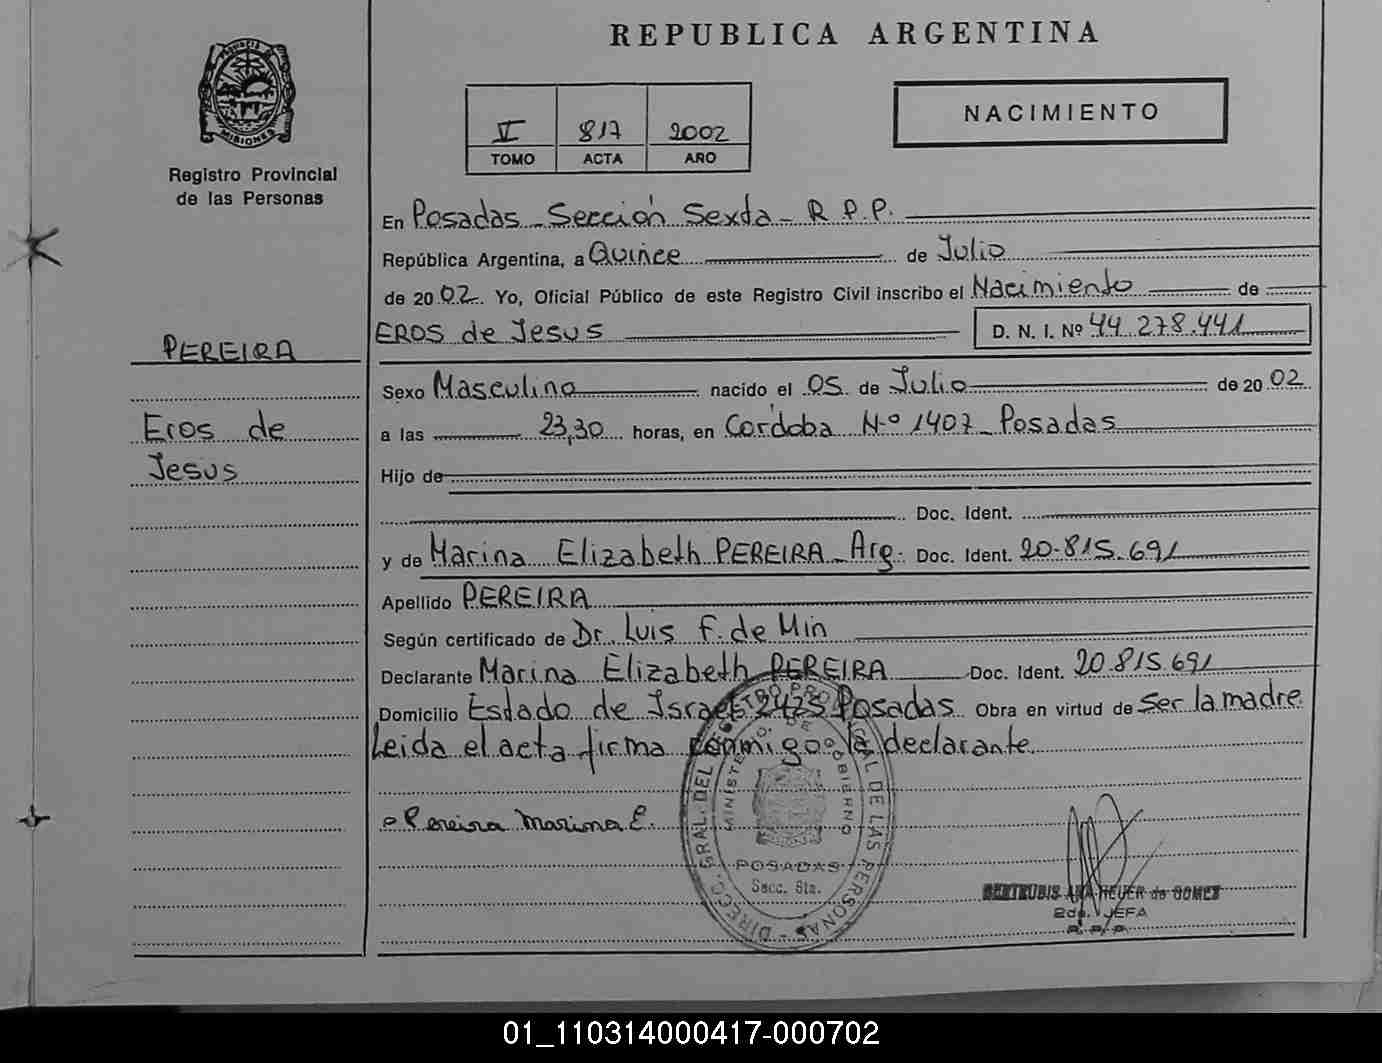 REPUBLICA ARGENTINA
PROVINCIA DE
MISIONES
Registro Provincial
de las Personas
V 817 2002
TOMO ACTA AÑO
NACIMIENTO
En Posadas - Sección Sexta - R.P.P.
República Argentina, a Quince de Julio
de 2002. Yo, Oficial Público de este Registro Civil inscribo el Nacimiento de
EROS de Jesus D. N. I. Nº 44.278.441
PEREIRA
Eros de
Jesus
Sexo Masculino nacido el 05 de Julio de 2002
a las 23,30 horas, en Cordoba N-º 1407 - Posadas
Hijo de
Doc. Ident.
y de Marina Elizabeth PEREIRA - Arg. Doc. Ident. 20.815.691
Apellido PEREIRA
Según certificado de Dr. Luis F. de Min
Declarante Marina Elizabeth PEREIRA Doc. Ident. 20.815.691
Domicilio Estado de Israel 2475 Posadas Obra en virtud de ser la madre
Leida el acta firma conmigo la declarante
Pereira Marina E.
DIRECC. GRAL. DEL REGISTRO PROVINCIAL DE LAS PERSONAS
MINISTERIO DE GOBIERNO
POSADAS
Secc. 6ta.
GERTRUDIS ANA HEUER de GOMEZ
2da. JEFA
R. P. P.
01_110314000417-000702